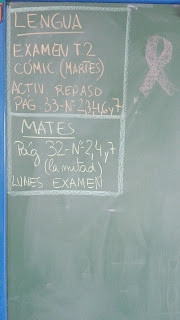 LENGUA
EXAMEN T2
CÓMIC (MARTES)
ACTIV REPASO
PAG 33-Nº 2,3,4,6 y 7
MATES
Pág 32-Nº 2,4 y 7
(la mitad)
LUNES EXAMEN